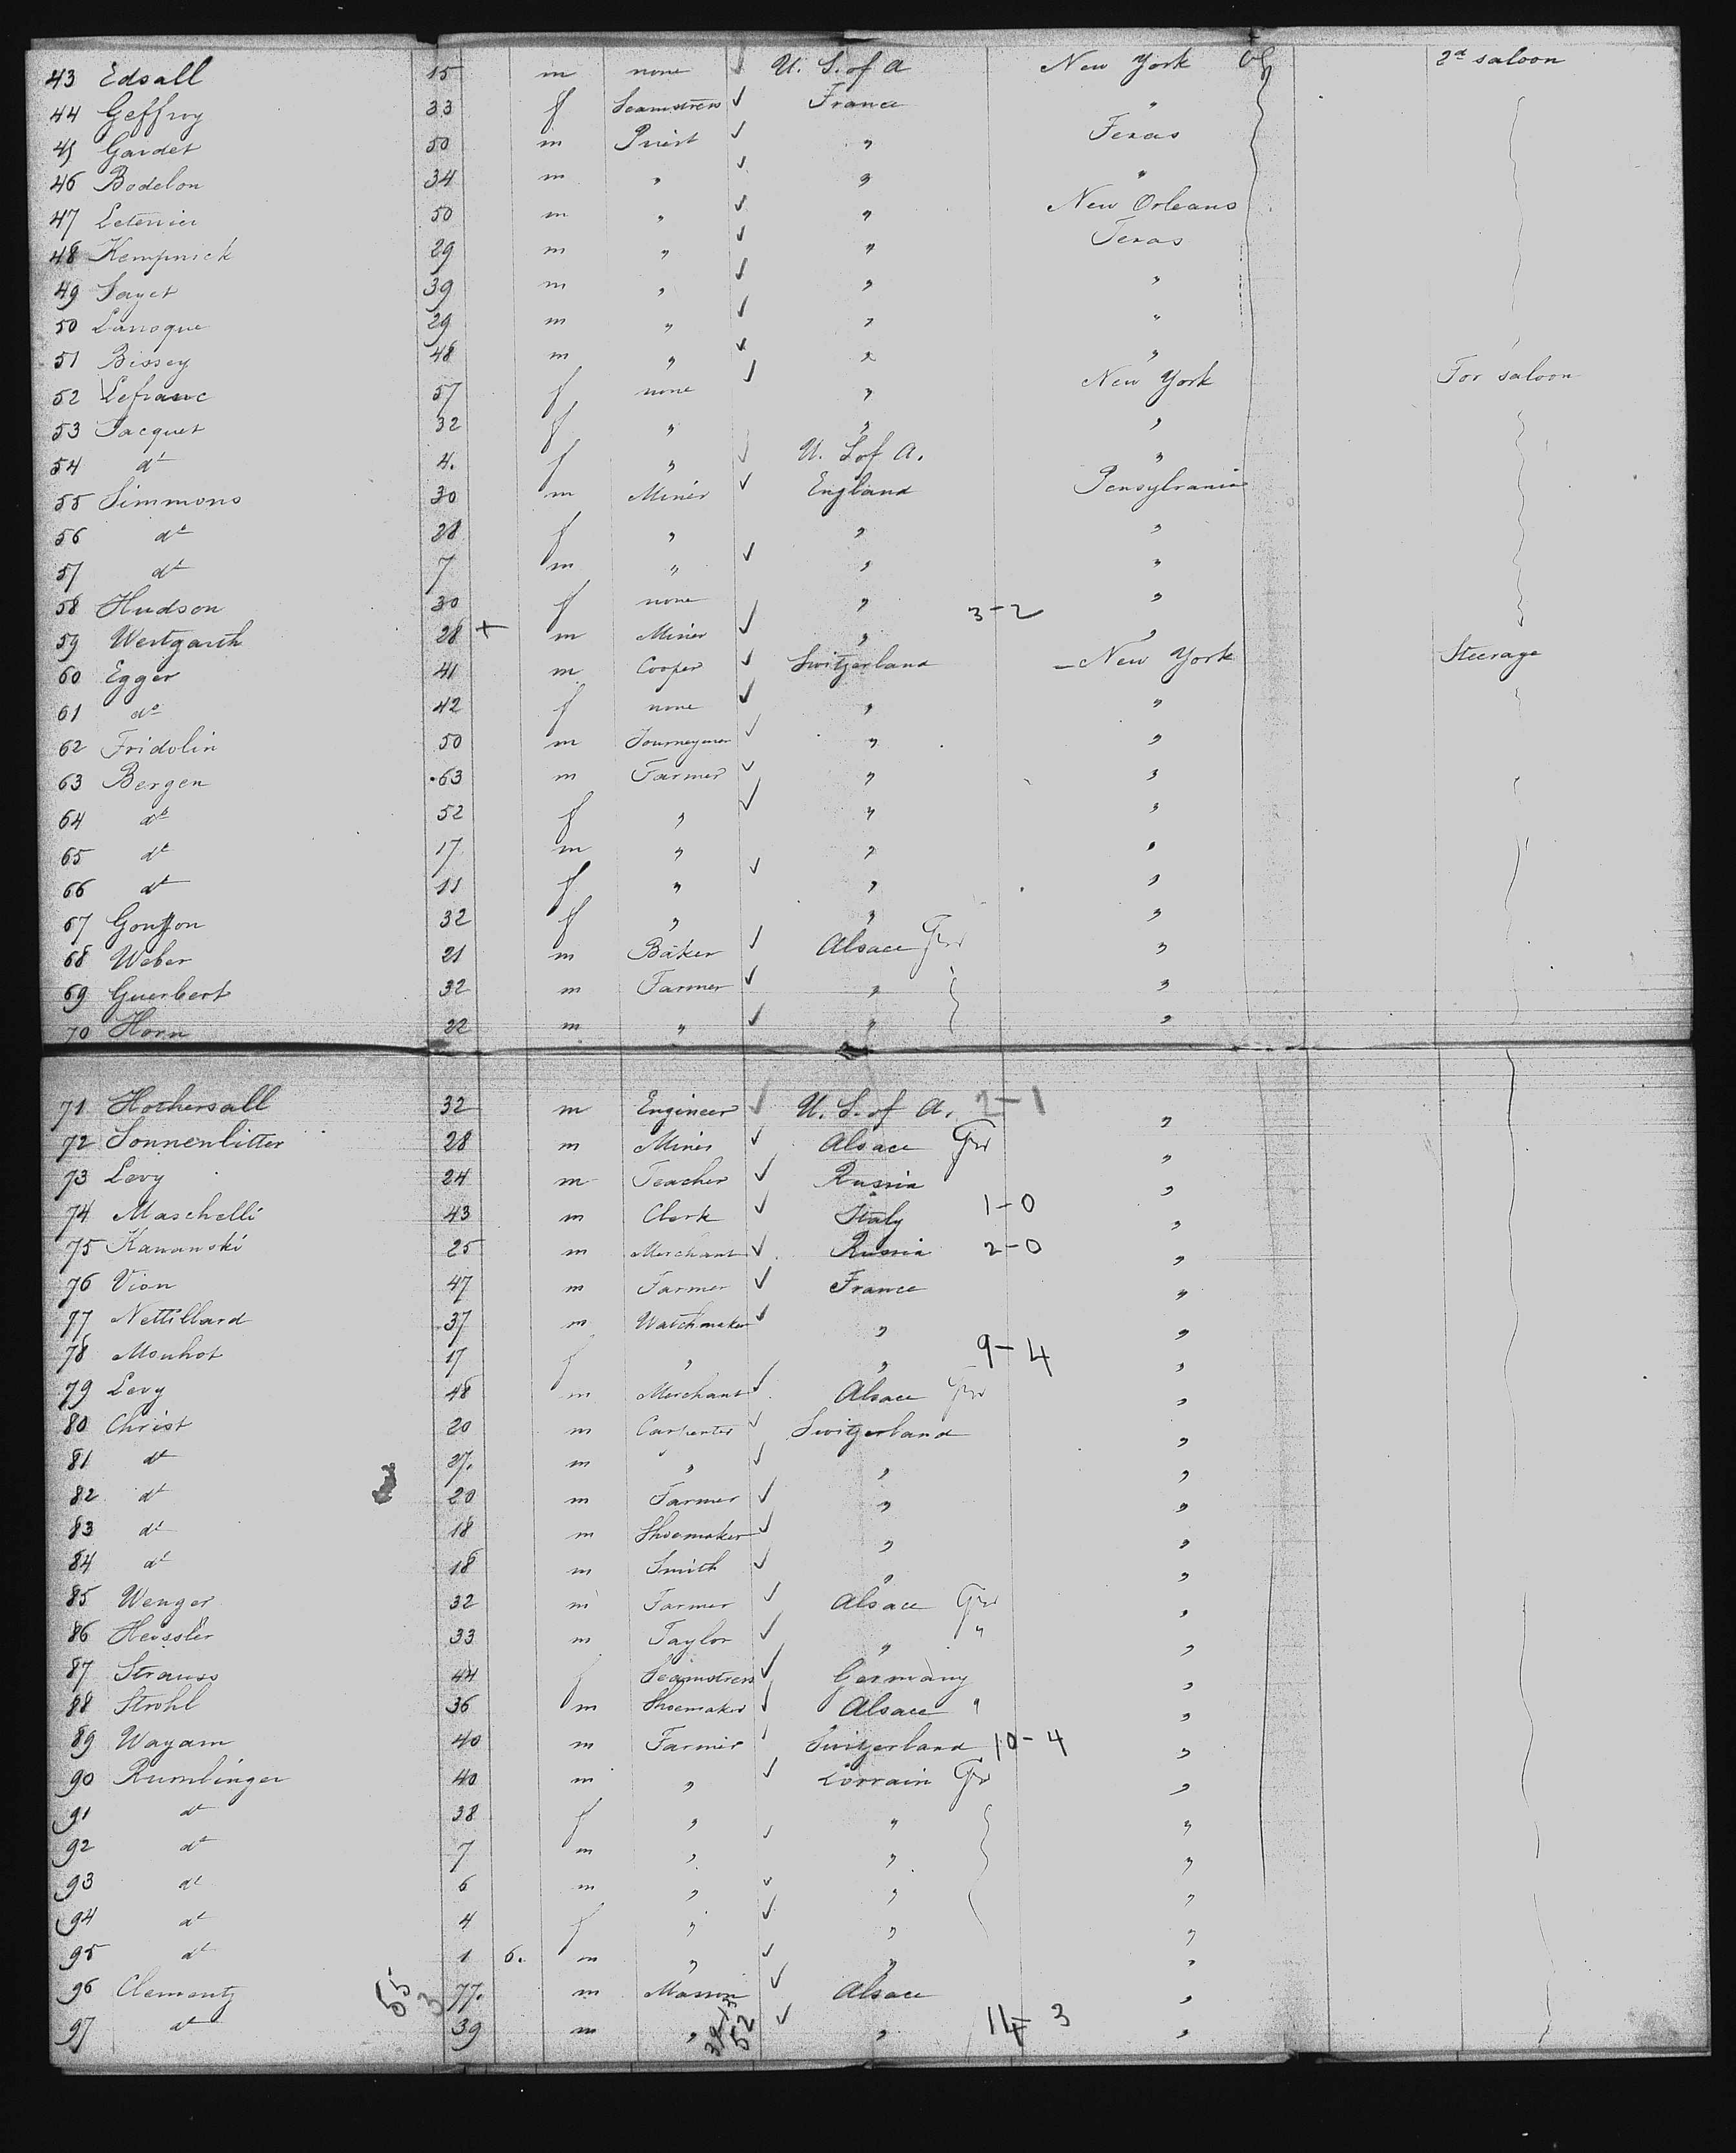 43 Edsall 15 m none ✓ U. S. of A New York 2d saloon
44 Geffroy 33 f Seamstress ✓ France "
45 Gardet 50 m Priest ✓ " Texas
46 Bodelon 34 m " ✓ " "
47 Letenier 50 m " ✓ " New Orleans
48 Kempnick 29 m " ✓ " Texas
49 Sayet 39 m " ✓ " "
50 Laroque 29 m " ✓ " "
51 Bissey 48 m " ✓ " "
52 Lefranc 57 f none ✓ " New York For saloon
53 Jacquet 32 f " " "
54 do 4. f " ✓ U. S of A. "
55 Simmons 30 m Miner ✓ England Pensylvania
56 do 28 f " " "
57 do 7 m " ✓ " "
58 Hudson 30 f none " 3-2 "
59 Westgarth 28 + m Miner ✓ " "
60 Egger 41 m Cooper ✓ Switzerland New York Steerage
61 do 42 f none ✓ " "
62 Fridolin 50 m Journeyman ✓ " "
63 Bergen 63 m Farmer ✓ " "
64 do 52 f " ✓ " "
65 do 17 m " " "
66 do 11 f " ✓ " "
67 32 f " " "
68 Weber 21 m Baker ✓ Alsace Ger "
69 Guerbert 32 m Farmer ✓ " "
70 Horn 22 m " ✓ " "
71 Hothersall 32 m Engineer ✓ U. S. of A. 2-1 "
72 Sonnenlitter 28 m Miner ✓ Alsace Ger "
73 Levy 24 m Teacher ✓ Russia "
74 Maschelli 43 m Clerk ✓ Italy 1-0 "
75 Kananski 25 m Merchant ✓ Russia 2-0 "
76 Vion 47 m Farmer ✓ France "
77 Nettillard 37 m Watchmaker ✓ " "
78 Mouhot 17 f " " 9-4 "
79 Levy 48 m Merchant ✓ Alsace Ger "
80 Christ 20 m Carpenter ✓ Switzerland "
81 do 27. m " ✓ " "
82 do 20 m Farmer ✓ " "
83 do 18 m Shoemaker ✓ " "
84 do 18 m Smith ✓ " "
85 Wenger 32 m Farmer ✓ Alsace Ger "
86 Heissler 33 m Taylor ✓ " " "
87 Strauss 44 f Seamstress ✓ Germany "
88 Strohl 36 m Shoemaker ✓ Alsace " "
89 Wayam 40 m Farmer ✓ Switzerland 10-4 "
90 Rumlinger 40 m " ✓ Lorrain Ger "
91 do 38 f " " "
92 do 7 m " ✓ " "
93 do 6 m " ✓ " "
94 do 4 f " ✓ " "
95 do 1 6. m " ✓ " "
96 Clementz 55 77. m Mason ✓ Alsace "
97 do 3 39 m " 52 ✓ " 14-3 "